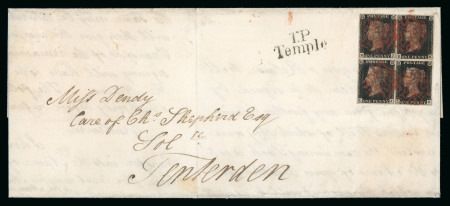 T.P
Temple
POSTAGE POSTAGE
ONE PENNY ONE PENNY
POSTAGE POSTAGE
ONE PENNY ONE PENNY
Miss Dendy
Care of Chs Shepherd Esq
Solr
Tenterden